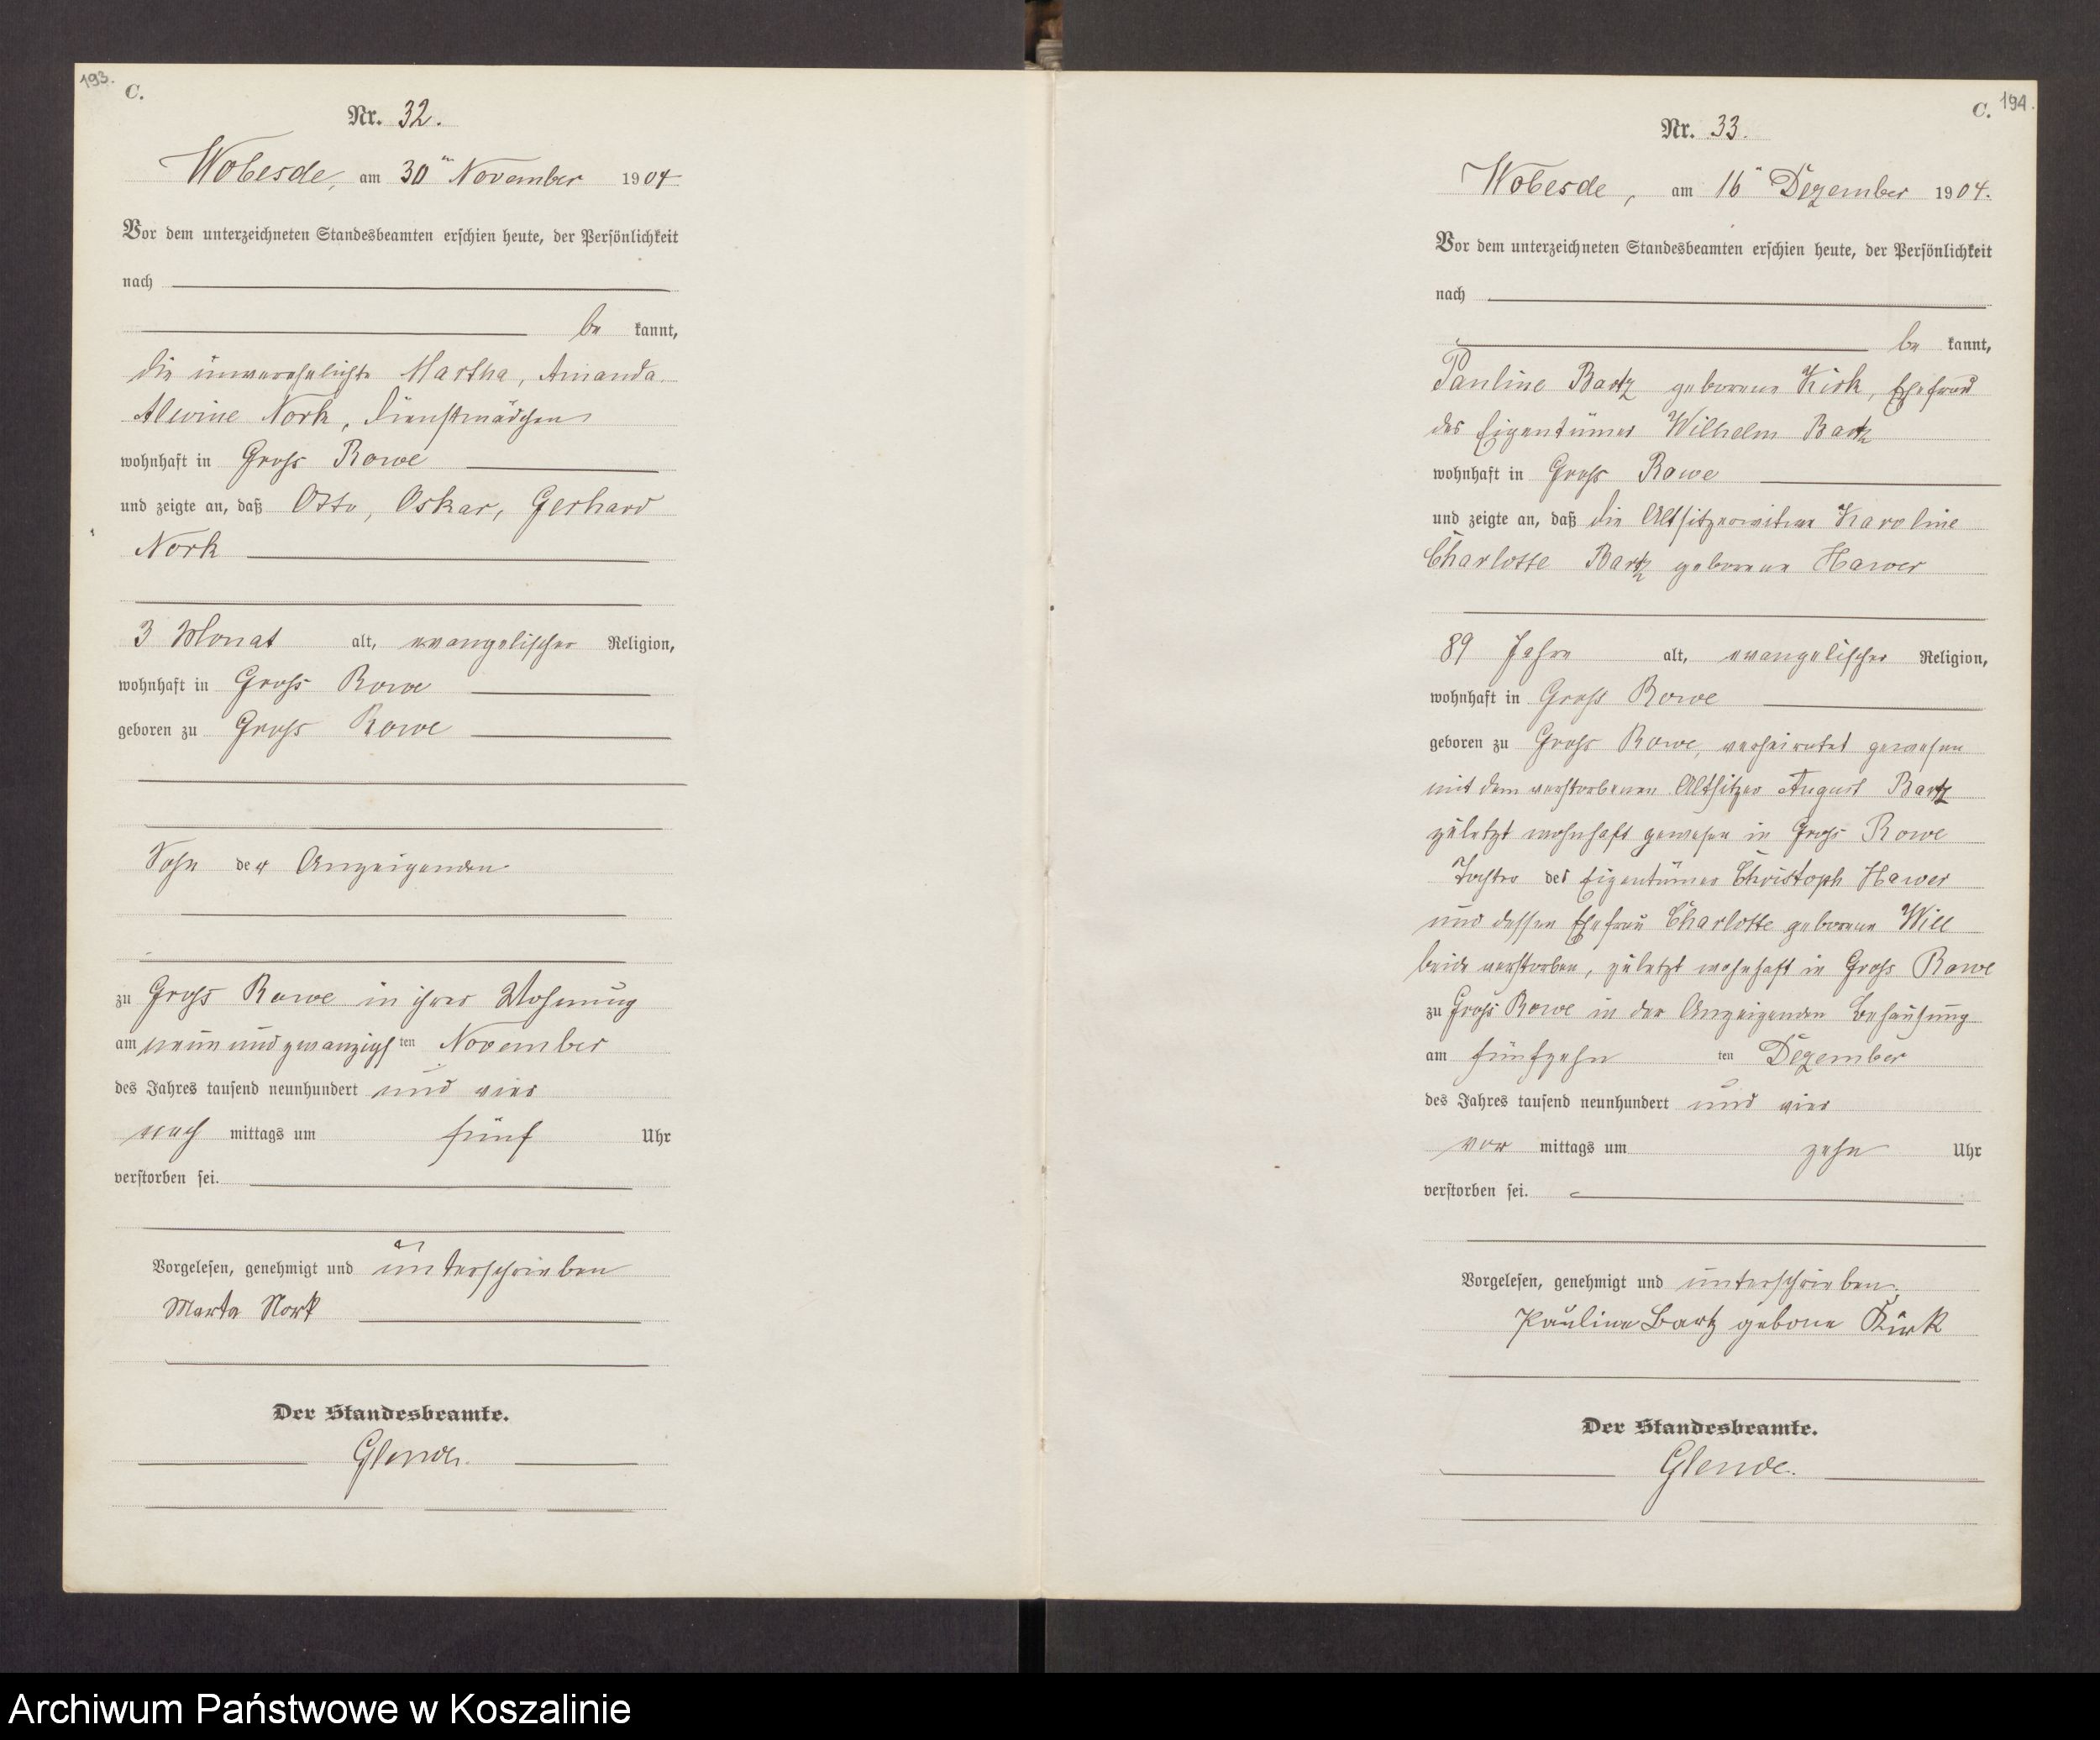 193.
C.
Nr. 32.
Wobesde, am 30ten November 1904
Vor dem unterzeichneten Standesbeamten erschien heute, der Persönlichkeit
nach
be kannt,
die unverehelichte Martha, Amanda
Alwine Nork, Dienstmädchen
wohnhaft in Gross Rowe
und zeigte an, daß Otto, Oskar, Gerhard
Nork
3 Monat alt, evangelischer Religion,
wohnhaft in Gross Rowe
geboren zu Gross Rowe
Sohn der Anzeigenden
zu Gross Rowe in ihrer Wohnung
am neunundzwanzigsten November
des Jahres tausend neunhundert und vier
nach mittags um fünf Uhr
verstorben sei.
Vorgelesen, genehmigt und unterschrieben
Marta Nork
Der Standesbeamte.
Glende.
194.
C.
Nr. 33.
Wobesde, am 16" Dezember 1904.
Vor dem unterzeichneten Standesbeamten erschien heute, der Persönlichkeit
nach
be kannt,
Pauline Bartz geborene Kirk, Ehefrau
des Eigentümer Wilhelm Bartz
wohnhaft in Gross Rowe
und zeigte an, daß die Altsitzerwitwe Karoline
Charlotte Bartz geborene Hawer
89 Jahre alt, evangelischer Religion,
wohnhaft in Gross Rowe
geboren zu Gross Rowe, verheiratet gewesen
mit dem verstorbenen Altsitzer August Bartz
zuletzt wohnhaft gewesen in Gross Rowe
Tochter des Eigentümer Christoph Hawer
und dessen Ehefrau Charlotte geborene Will
beide verstorben, zuletzt wohnhaft in Gross Rowe
zu Gross Rowe in der Anzeigenden Behausung
am fünfzehn ten Dezember
des Jahres tausend neunhundert und vier
vor mittags um zehn Uhr
verstorben sei.
Vorgelesen, genehmigt und unterschrieben.
Pauline Bartz gebone Kirk
Der Standesbeamte.
Glende.
Archiwum Państwowe w Koszalinie